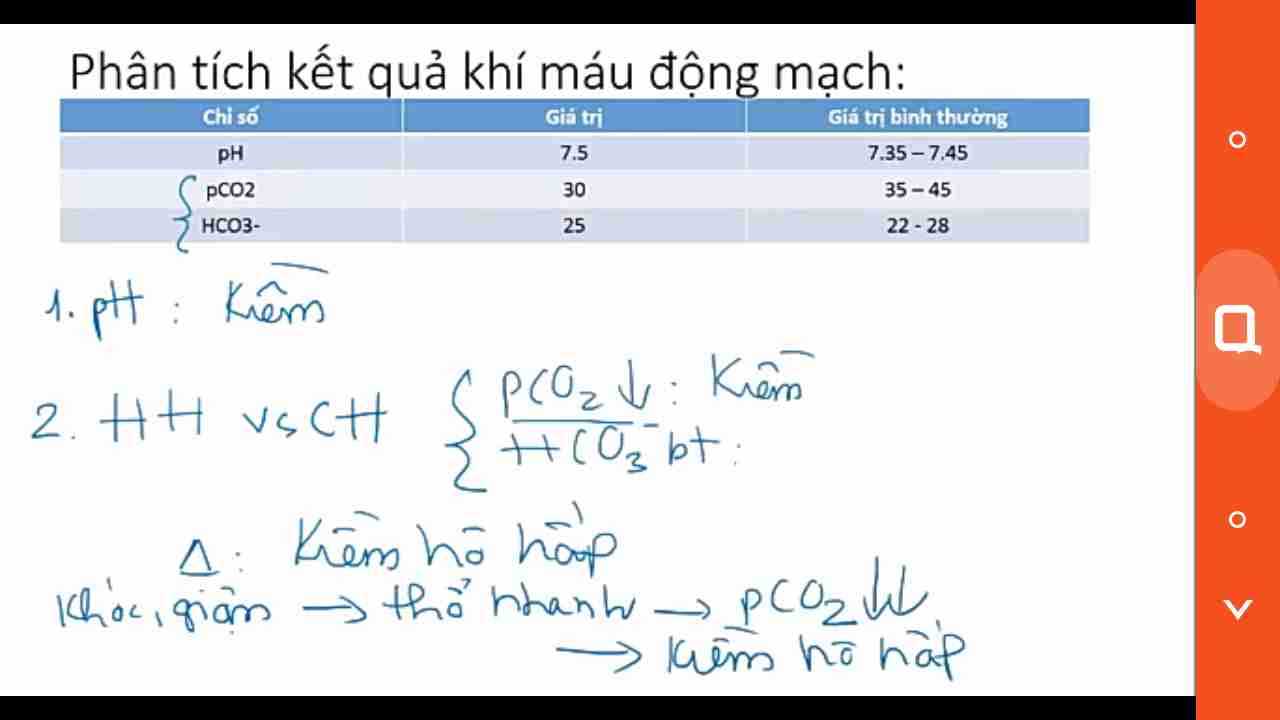 Phân tích kết quả khí máu động mạch:
Chỉ số Giá trị Giá trị bình thường
pH 7.5 7.35 – 7.45
pCO2 30 35 – 45
HCO3- 25 22 - 28
1. pH : Kiềm
2. HH vs CH { pCO2 ↓ : Kiềm
HCO3- bt :
Δ : Kiềm hô hấp
Khóc, giận → thở nhanh → pCO2 ↓↓
→ Kiềm hô hấp